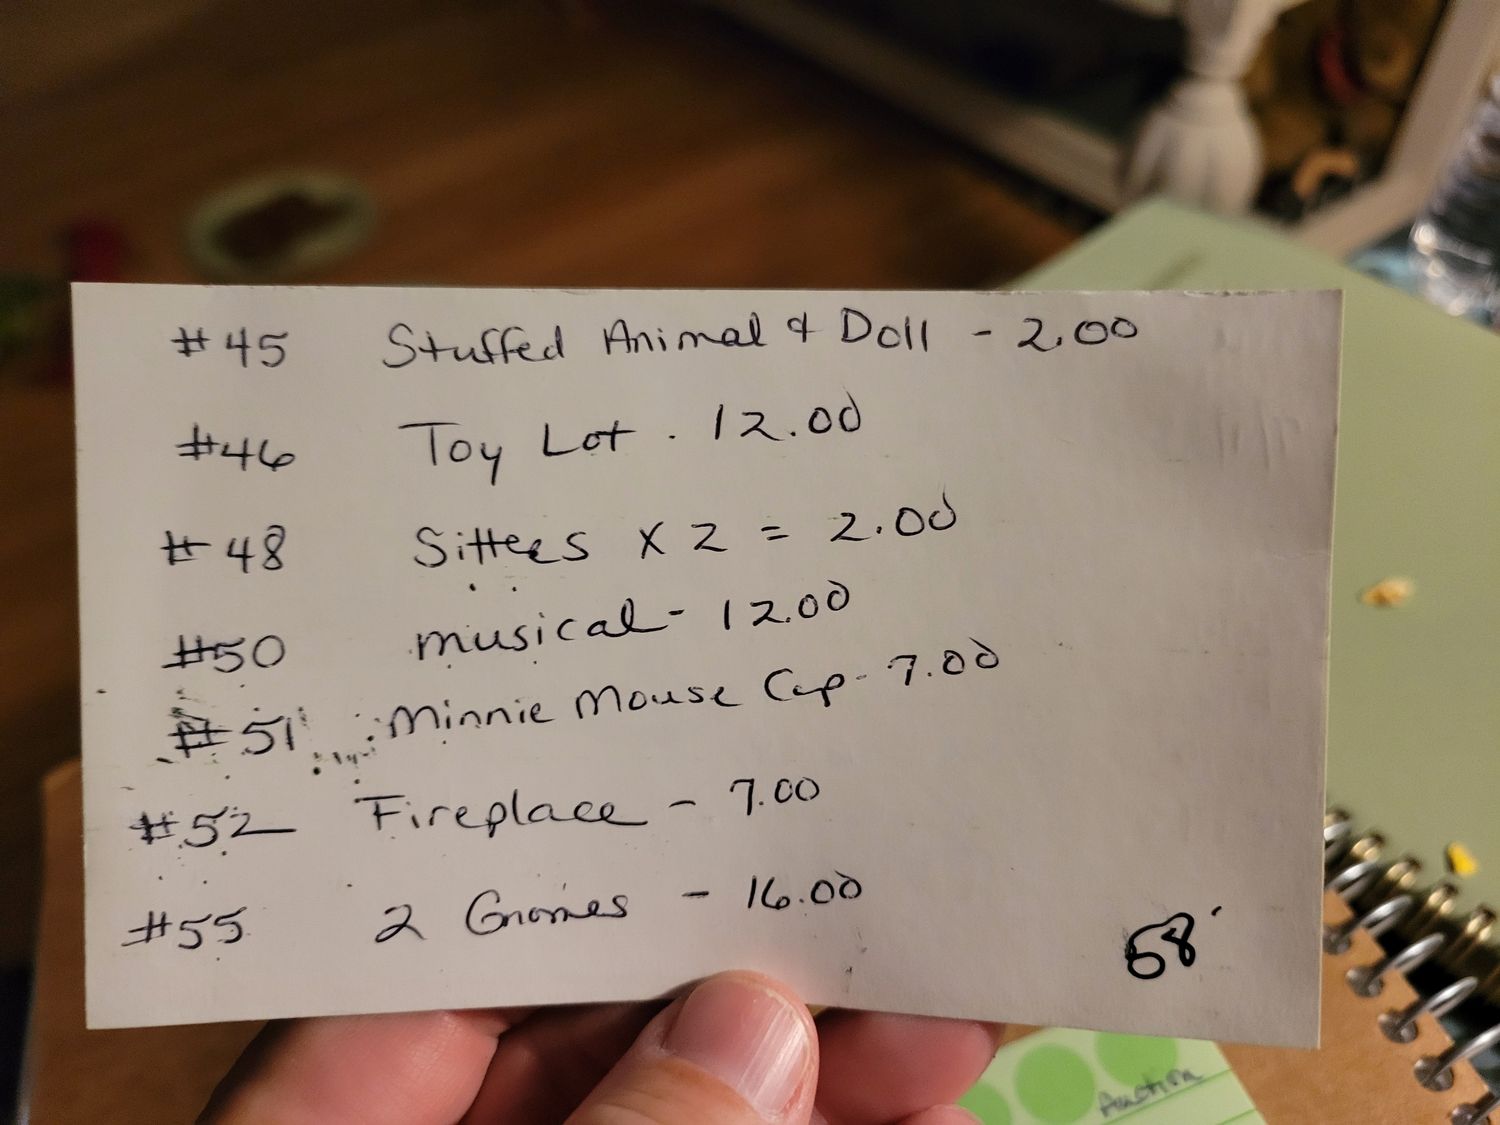 #45 Stuffed Animal & Doll - 2.00
#46 Toy Lot . 12.00
#48 Sitters X 2 = 2.00
#50 musical - 12.00
#51 Minnie Mouse Cup - 7.00
#52 Fireplace - 7.00
#55 2 Gnomes - 16.00
58
Auction